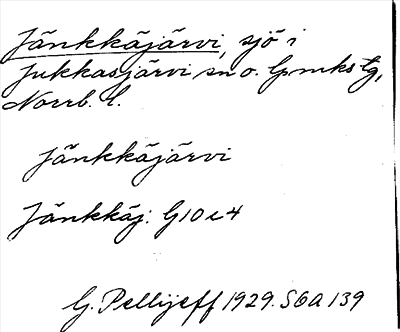 Jänkkäjärvi, sjö i
Jukkasjärvi sn o. lpmks tg,
Norrb. l.
jänkkäjärvi
Jänkkäj: G10e4
G. Pellijeff 1929. S6a139